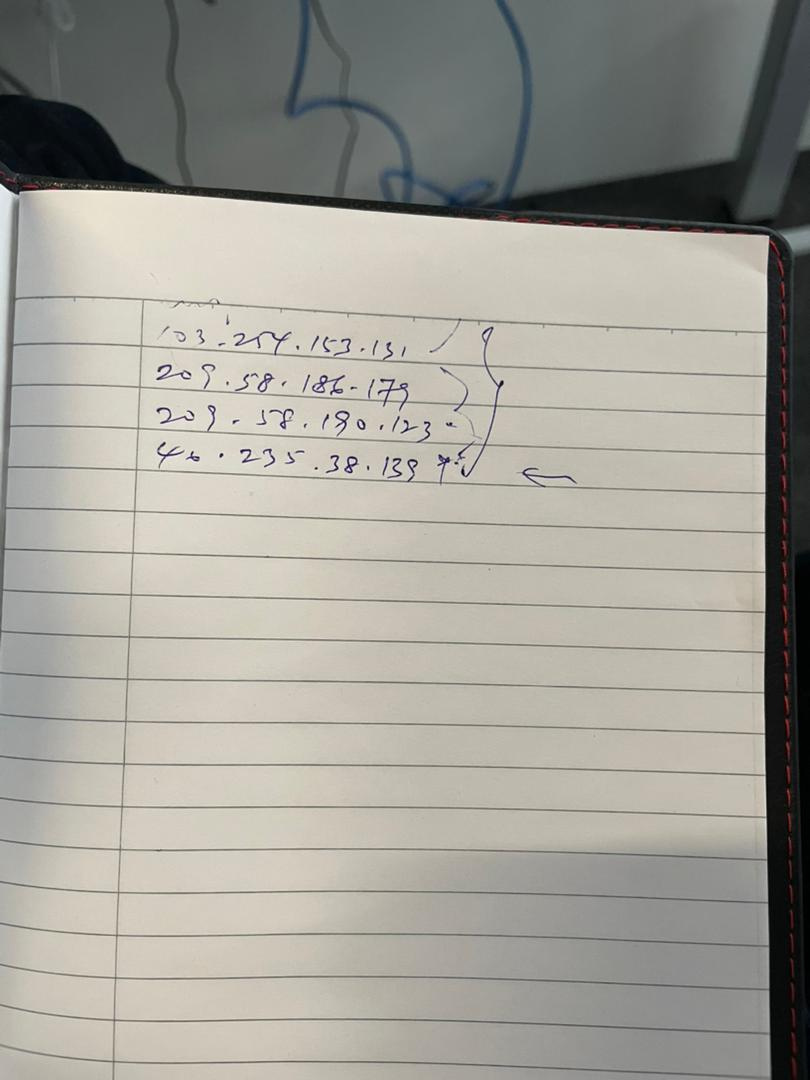 103.254.153.131
209.58.186.179
209.58.190.123
46.235.38.139